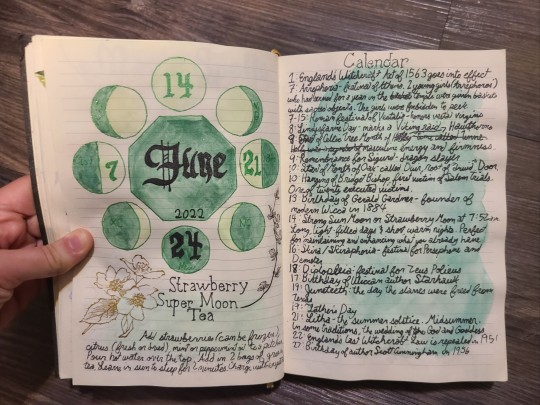 14
7
June
21
2022
24
Strawberry
Super Moon
Tea
Add strawberries (can be frozen)
citrus (fresh or dried) mint or peppermint
Pour hot water over the top. Add in 2 bags of
tea. Leave in sun to steep for
Calendar
1: England's Witchcraft Act of 1563 goes into effect
7: Arrephoria- festival of Athena. 2 young girls (Arrephoroi)
who had served for a year in the temple were given baskets
with sacred objects. The girls were forbidden to peek.
7-15: Roman festival of Vestalia- honors vesta/ virgins
8: Lindisfarne Day- marks a Viking raid. Hawthorne
of Celtic Tree Month of
masculine energy and firmness.
9: Remembrance for Sigurd- dragon slayer
10: Start of Month of Oak called Duir, root of "Druid", Door
10: Hanging of Bridget Bishop, first victim of Salem trials.
One of twenty executed victims.
13: Birthday of Gerald Gardner- founder of
modern Wicca in 1884
14: Strong Sun Moon or Strawberry Moon at 7:52am
Long, light-filled days & short warm nights. Perfect
for maintaining and enhancing what you already have
16: Skira/Skiraphoria- festival for Persephone and
Demeter
18: Dipolieia- festival for Zeus Polieus
17: Birthday of Wiccan author Starhawk
19: Juneteenth: the day the slaves were freed from
Texas
19: Father's Day
21: Litha- the summer solstice. Midsummer.
In some traditions, the wedding of the God and Goddess
22: England's last Witchcraft Law is repealed in 1951
27: Birthday of author Scott Cunningham in 1956